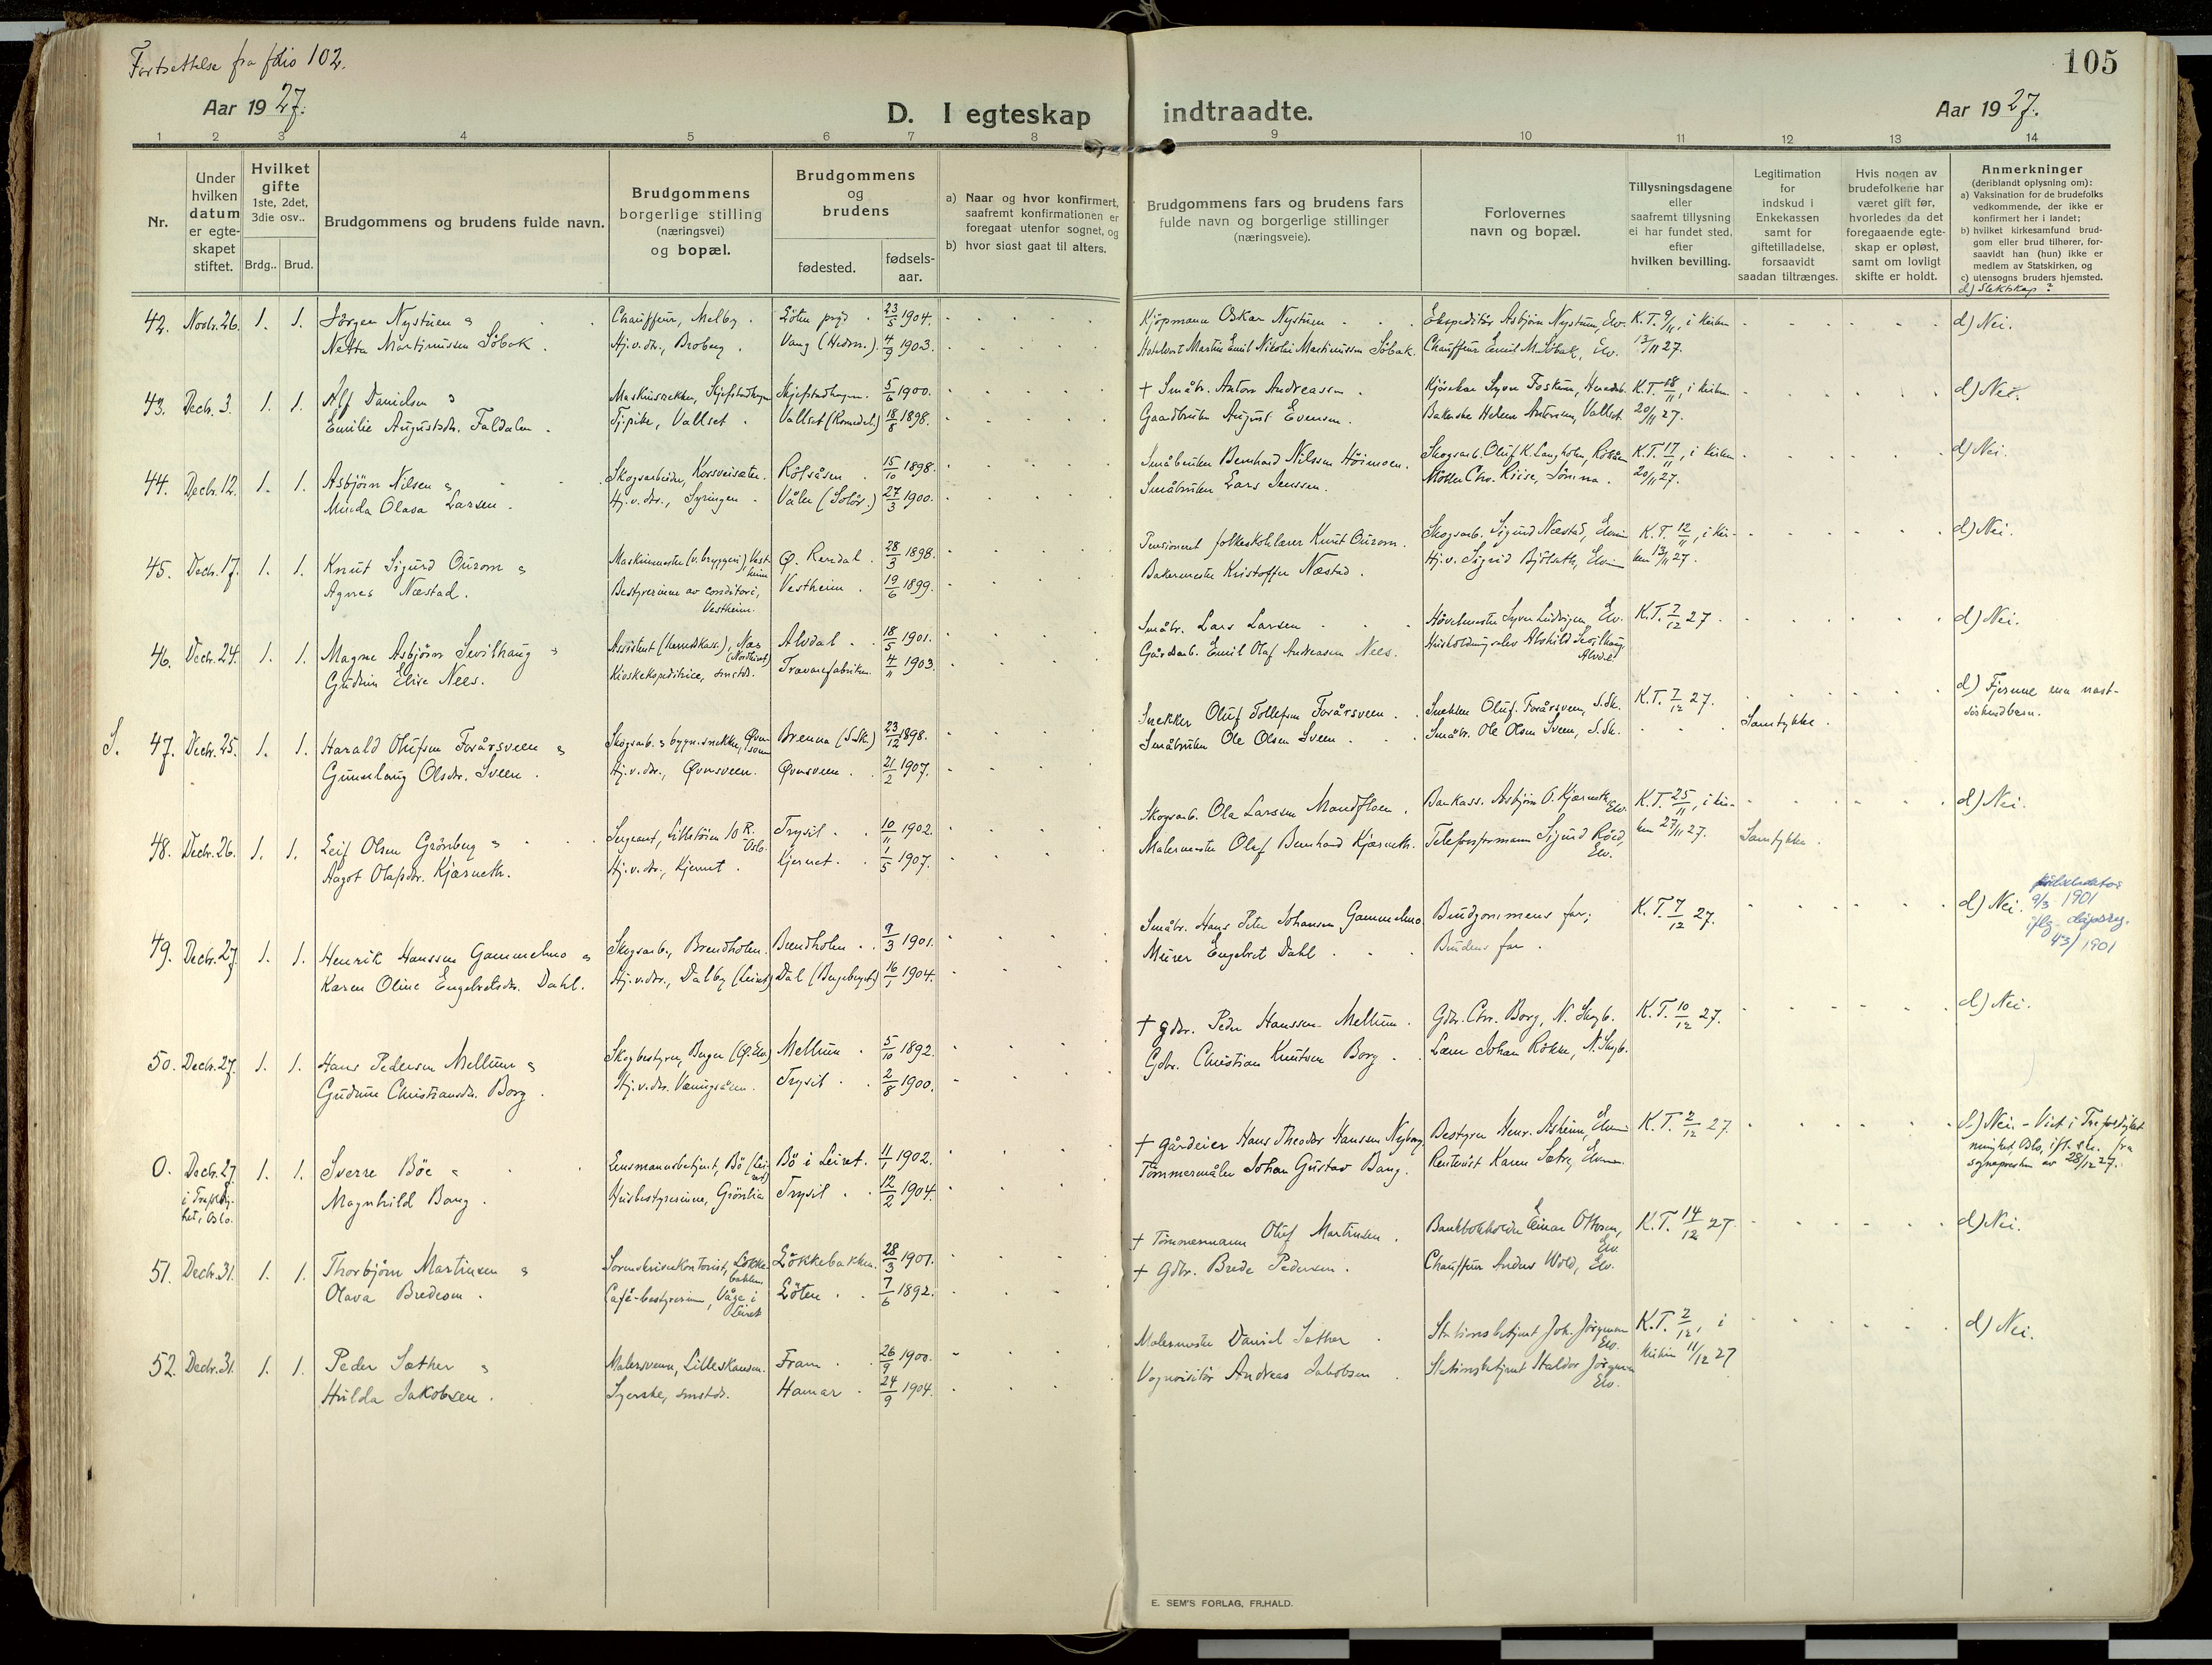 Fortsettelse fra folio 102.
105
Aar 1927.
D. I egteskap indtraadte.
Aar 1927.
1 2 3 4 5 6 7 8 9 10 11 12 13 14
Nr.
Under hvilken datum er egteskapet stiftet.
Hvilket gifte 1ste, 2det, 3die osv..
Brdg.. Brud.
Brudgommens og brudens fulde navn.
Brudgommens borgerlige stilling (næringsvei) og bopæl.
Brudgommens og brudens
fødested.
fødsels-aar.
a) Naar og hvor konfirmert, saafremt konfirmationen er foregaat utenfor sognet, og
b) hvor sidst gaat til alters.
Brudgommens fars og brudens fars fulde navn og borgerlige stillinger (næringsveie).
Forlovernes navn og bopæl.
Tillysningsdagene eller saafremt tillysning ei har fundet sted, efter hvilken bevilling.
Legitimation for indskud i Enkekassen samt for giftetilladelse, forsaavidt saadan tiltrænges.
Hvis nogen av brudefolkene har været gift før, hvorledes da det foregaaende egteskap er opløst, samt om lovligt skifte er holdt.
Anmerkninger
(deriblandt oplysning om):
a) Vaksination for de brudefolks vedkommende, der ikke er konfirmert her i landet;
b) hvilket kirkesamfund brudgom eller brud tilhører, forsaavidt han (hun) ikke er medlem av Statskirken, og
c) utensogns bruders hjemsted.
d) Slektskap?
42. Novbr. 26. 1. 1. Jörgen Nystuen og Chauffeur, Melby. Löten 23/5 1904. Kjöpmann Oskar Nystuen Ekspeditör Asbjörn Nystuen, Elv. K.T. 9/11, i kirken d) Nei.
Netta Martinussen Söbak. Hj.v.dr., Broberg. Vang (Hedm.). 4/9 1903. Martin Emil Nikolai Martinussen Söbak. Chauffeur Emil M. Söbak, Elv. 13/11 27.
43. Decbr. 3. 1. 1. Alf Danielsen og 5/6 1900. † Småbr. Anton Andreassen. K.T. 18/11, i kirken d) Nei.
Emilie Augustsdr. Faldalen. Tj.pike, Vallset. Vallset (Romedal.) 18/8 1898. Gaardbruker August Evensen. Vallset. 20/11 27.
44. Decbr. 12. 1. 1. Asbjörn Nilsen og Skogsarbeider, Korsveisæter. Rötsåsen 15/10 1898. Småbruker Bernhard Nilssen Höimoen. Skogsarb. Oluf K. Langholen, K.T. 17/11, i kirken d) Nei.
Minda Olava Larsen. Hj.v.dr., Våler (Solör.) 27/3 1900. Småbruker Lars Jenssen. 20/11 27.
45. Decbr. 17. 1. 1. Knut Sigurd Ourom og Maskinmester (v. bryggeri), Vestheim Ø. Rendal. 28/3 1898. Pensioneret folkeskolelærer Knut Ourom. Skogsarb. Sigurd Næstad, K.T. 12/11, i kir- d) Nei.
Agnes Næstad. Bestyrerinne av conditori, Vestheim. Vestheim. 19/6 1899. Bakermester Kristoffer Næstad. ken 13/11 27.
46. Decbr. 24. 1. 1. Magne Asbjörn Svoilhaug og Assistent (herredskass.), Næs Alvdal 18/5 1901. Småbr. Lars Larsen K.T. 7/12 27. d) Nei.
Gudrun Elise Nees. Kioskekspeditrice, smstds. Trævarefabriken. 4/11 1903. Gårdsarb. Emil Olaf Andreassen Nees. Alvdal
S. 47. Decbr. 25. 1. 1. Harald Olufsen Foråsveen og Skogsarb. og bygn.snekker, Brenna (S.Sk.) 23/12 1898. Snekker Oluf Tollefsen Foråsveen. Snekker Oluf Foråsveen, S.Sk. K.T. 7/12 27. d) Fjernere enn nest-
Gunerlaug Olsdr. Sveen. Hj.v.dr., Øversveen. Øversveen. 21/2 1907. Småbruker Ole Olsen Sveen Småbr. Ole Olsen Sveen, S.Sk. Samtykke. söskendebarn.
48. Decbr. 26. 1. 1. Leif Olsen Grönberg og Sergeant, Oslo. Trysil 10/11 1902. Skogsarb. Ola Larssen Mandfloen. Asbjörn O. Kjærneth, Elv. K.T. 25/11, i kir- d) Nei.
Aagot Olafsdr. Kjærneth. Hj.v.dr., Kjernet. Kjernet. 1/5 1907. Malermester Olaf Bernhard Kjærneth. Sigurd Röed, Elv. ken 27/11 27. Samtykke.
49. Decbr. 27. 1. 1. Henrik Hanssen Gammelmo og Skogsarb., Brendholen. Brendholen 9/3 1901. Småbr. Hans Peter Johansen Gammelmo Brudgommens far; K.T. 7/12 27. d) Nei. födselsdato: 9/3 1901 iflg. dåpsreg. 43/1901
Karen Oline Engebretsdr. Dahl. Hj.v.dr., Dalby (Leiret) Dal 16/1 1904. Murer Engebret Dahl Brudens far.
50. Decbr. 27. 1. 1. Hans Pedersen Mellum og Skogbestyrer, Berger (Ø. Elv.) Mellum 5/10 1892. † Gdbr. Peder Hanssen Mellum. Gdbr. Chr. Borg, N. Skogb. K.T. 10/12 27. d) Nei.
Gudrun Christiansdr. Borg. Hj.v.dr. Trysil 2/8 1900. Gdbr. Christian Knutsen Borg Lærer Johan Rökke, N. Skogb.
0. Decbr. 27 1. 1. Sverre Böe og Lensmannsbetjent, Bö (Leiret) Bö i Leiret. 11/1 1902. † Gårdeier Hans Theodor Hanssen Nyborg. Bestyrer Henr. Asheim, K.T. 2/12 27. d) Nei. - Viet i Trefoldighet
i Trefoldighet, Oslo. Magnhild Bang. Husbestyrerinne, Grönlia Trysil 12/2 1904. Tömmermåler Johan Gustav Bang. Karen Sætre, menighet, Oslo, fra sognepresten av 28/12 27.
51. Decbr. 31. 1. 1. Thorbjörn Martinsen og Sorenskriverkontorist, Lökkebakken. Lökkebakken. 28/3 1901. † Tömmermann Oluf Martinsen. Bankbokholder Einar Ottosen, Elv. K.T. 14/12 27. d) Nei.
Olava Bredesen. Café-bestyrerinne, Våge i Leiret Löten 7/6 1892. † Gdbr. Brede Pedersen. Chauffeur Anders Wold, Elv.
52. Decbr. 31. 1. 1. Peder Sæther og Malersvenn, Lilleskansen. Fram 26/9 1900. Malermester Daniel Sæther Stationsbetjent Joh. Jörgensen Elv. K.T. 2/12, i d) Nei.
Hulda Jakobsen. Syerske, smstds. Hamar 24/9 1904. Vognvisitör Andreas Jakobsen Stationsbetjent Haldor Jörgensen Elv. kirken 11/12 27
E. SEM'S FORLAG, FR.HALD.